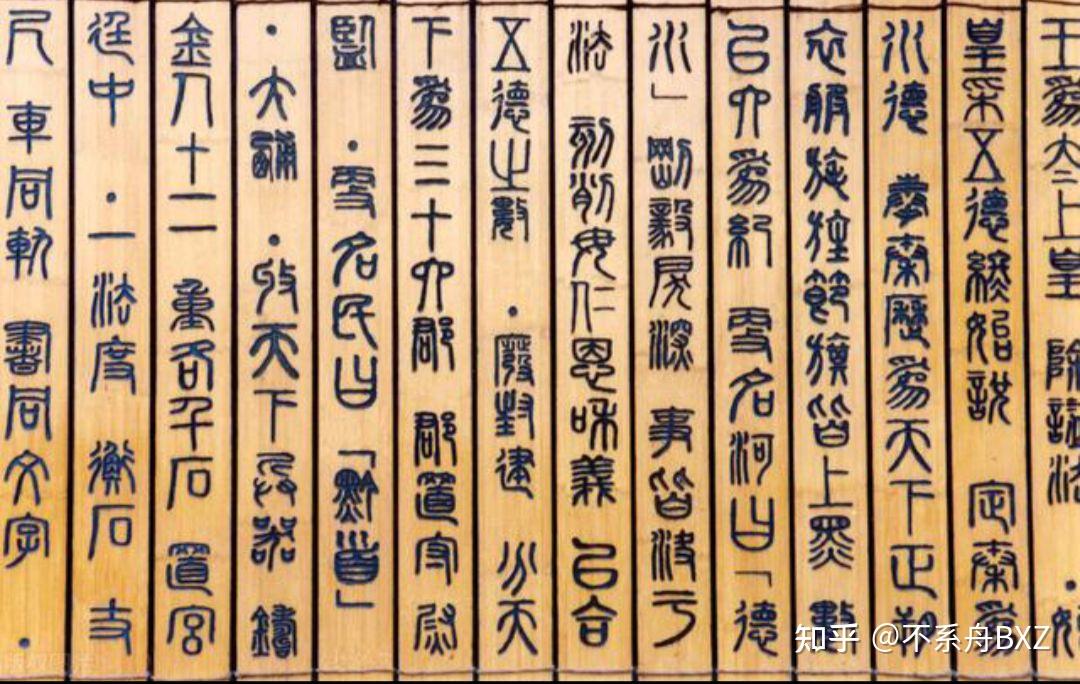 王爲大上皇 除諡法 ·始
皇采五德終始說 定秦爲
水德 秦歷爲天下正朔
衣服旄旌節旗皆上黑 數
以六爲紀 更名河曰「德
水」 剛毅戾深 事皆決于
法 刻削毋仁恩和義 以合
五德之數 ·廢封建 分天
下爲三十六郡 郡置守尉
監 ·更名民曰「黔首」
·大酺 ·收天下兵器 鑄
金人十二 重各千石 置宮
廷中 ·一法度 衡石 丈
尺 車同軌 書同文字 ·
知乎 @不系舟BXZ